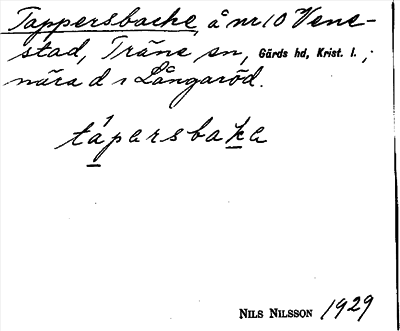 Tappersbacke, å nr 10 Vene-
stad, Träne sn, Gärds hd, Krist. l.,
nära d:o Långaröd.
tápersbaka
NILS NILSSON 1929